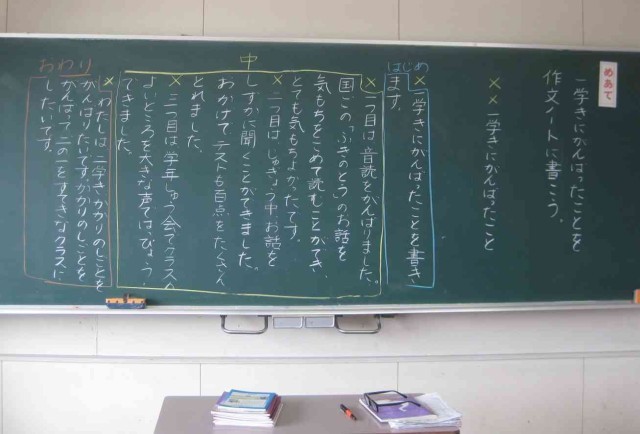 めあて
一学きにがんばったことを
作文ノートに書こう。
××一学きにがんばったこと
はじめ
×一学きにがんばったことを書き
ます。
中
×一つ目は音読をがんばりました。
国ごの「ふきのとう」のお話を
気もちをこめて読むことができ、
とても気もちよかったです。
×二つ目はじゅぎょう中お話を
しずかに聞くことができました。
おかげでテストも百点をたくさん
とれました。
×三つ目は学年しゅう会でクラスの
よいところを大きな声ではっぴょう
できました。
おわり
×わたしは二学きかかりのしごとを
がんばりたいです。かかりのしごとを
がんばって二の一をすてきなクラスに
したいです。